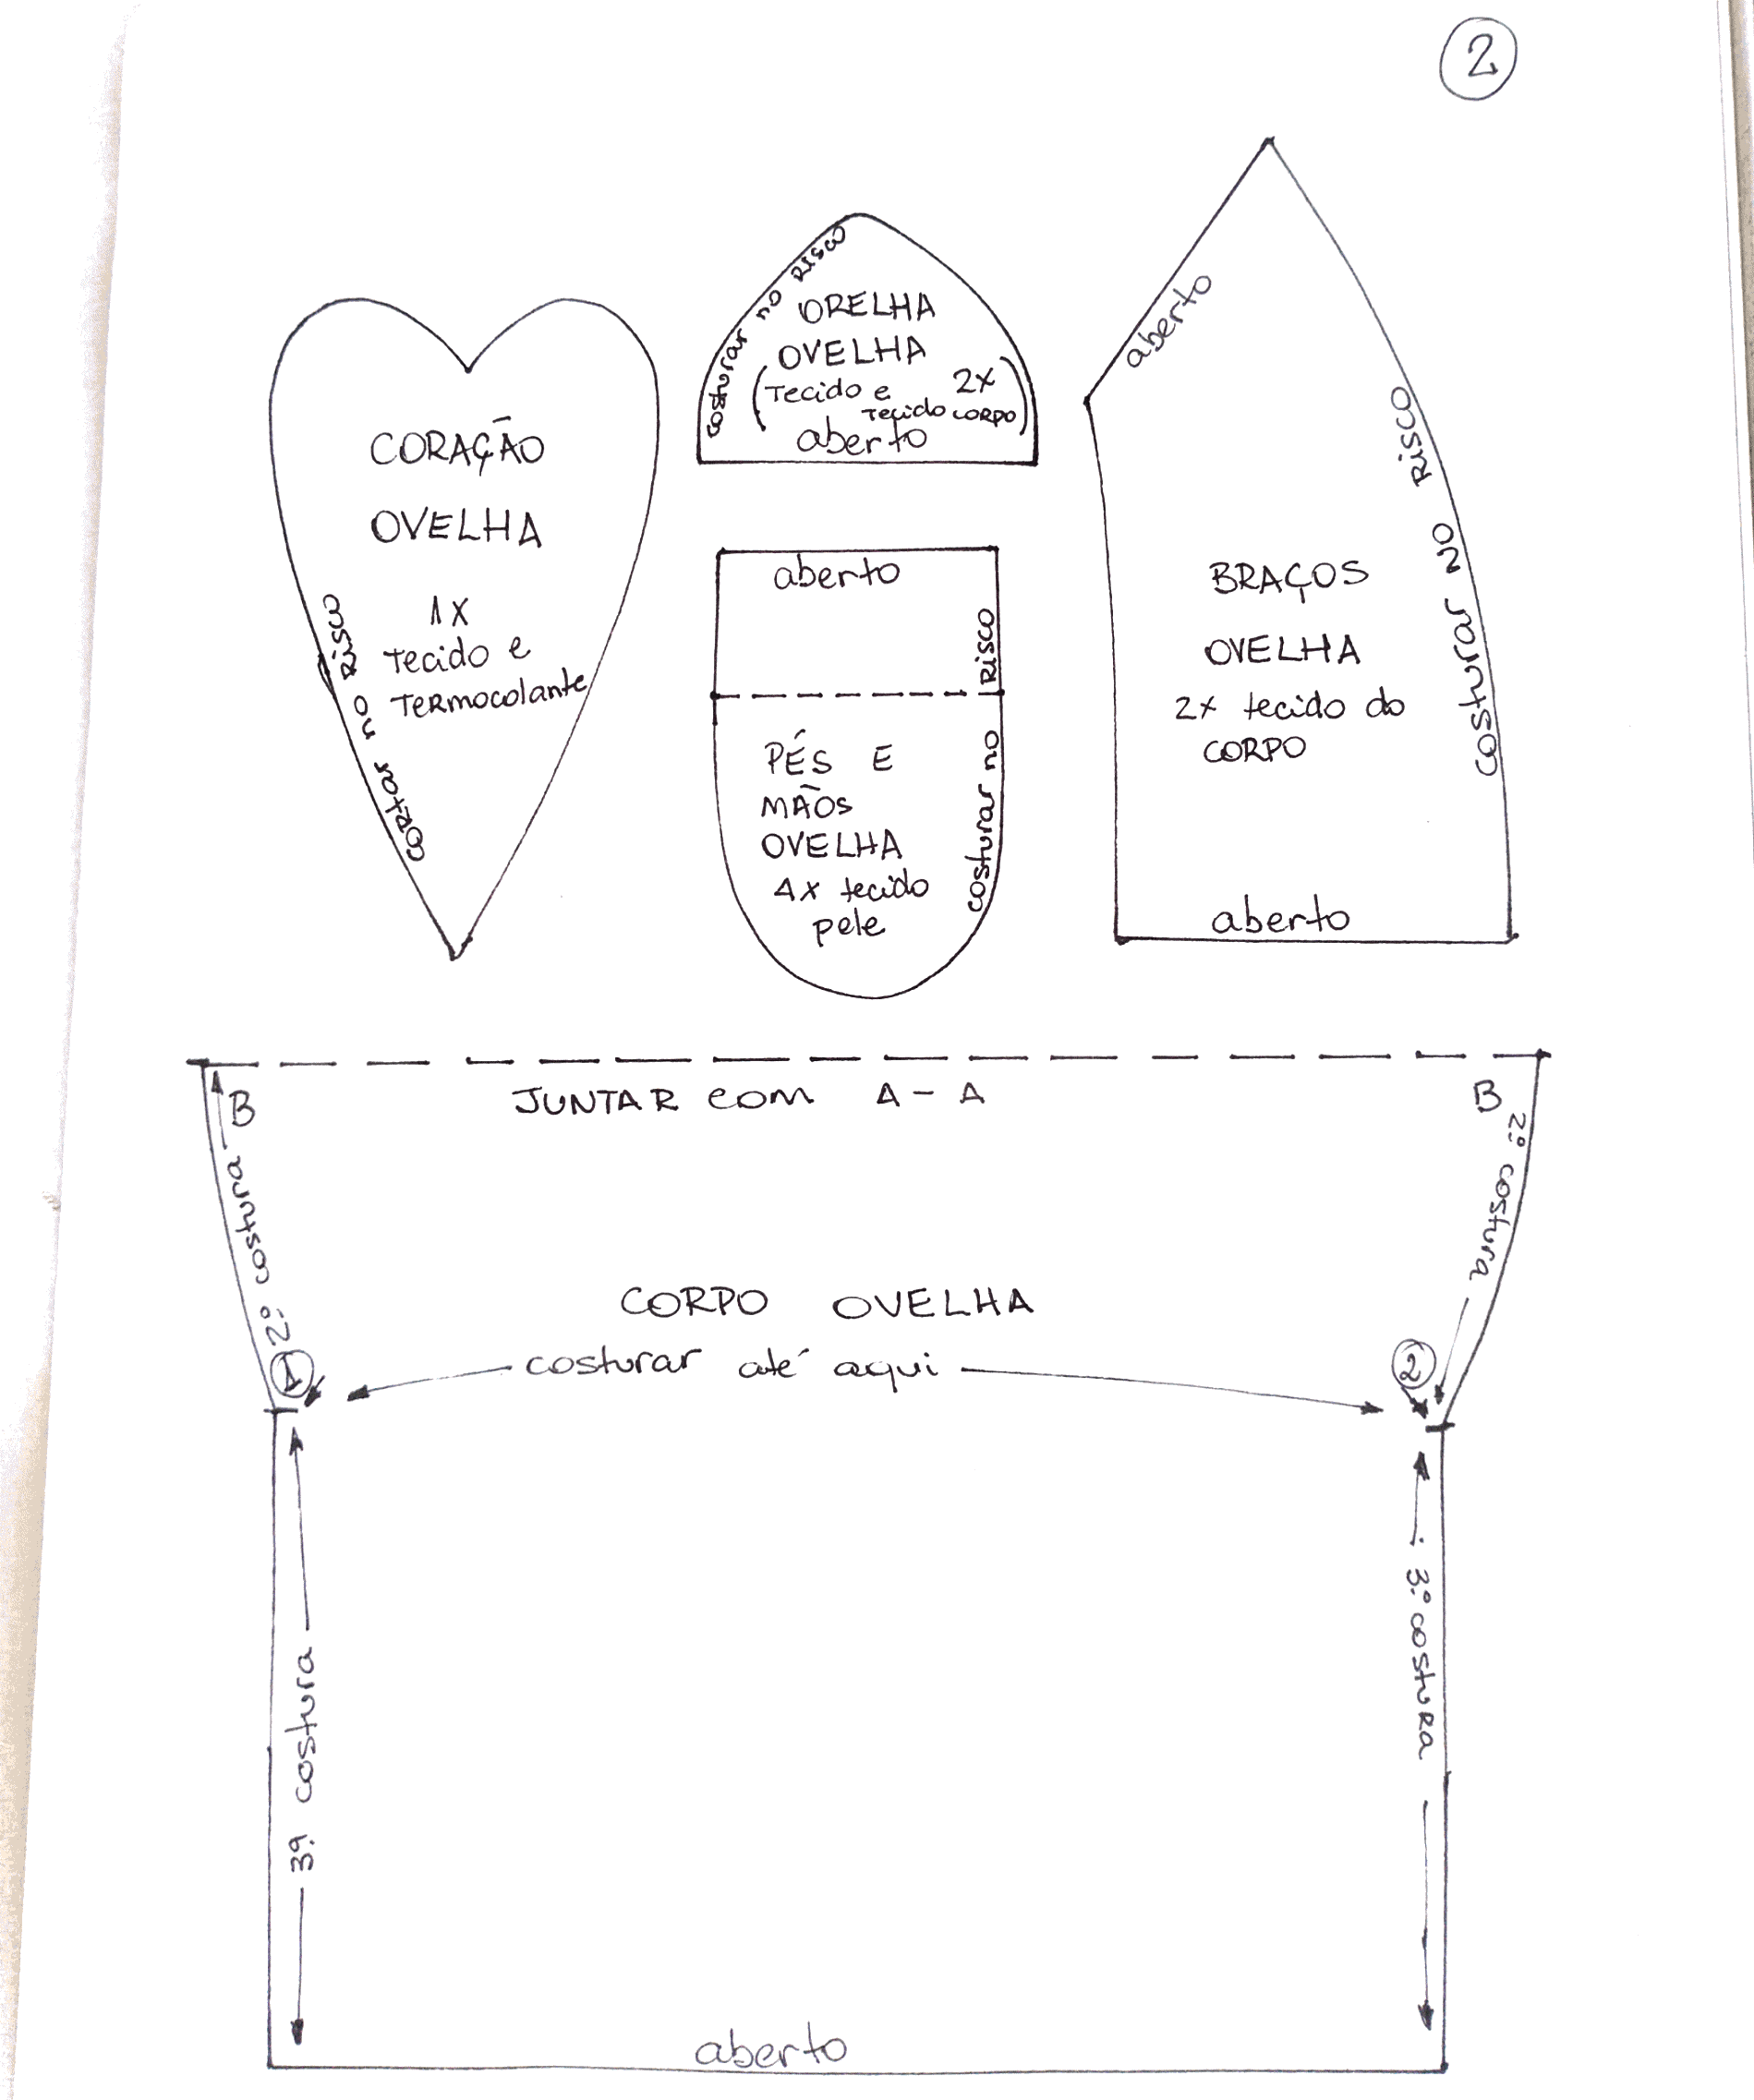 2
CORAÇÃO
OVELHA
1X
tecido e
TERMOCOLANTE
cortar no Risco
costurar no Risco
ORELHA
OVELHA
(Tecido e 2x
Tecido CORPO)
aberto
aberto
PÉS E
MÃOS
OVELHA
4x tecido
pele
costurar no Risco
aberto
BRAÇOS
OVELHA
2x tecido do
CORPO
costurar no Risco
aberto
JUNTAR com A - A
B
B
2º costura
2º costura
CORPO OVELHA
costurar até aqui
1
2
3º costura
3º costura
aberto